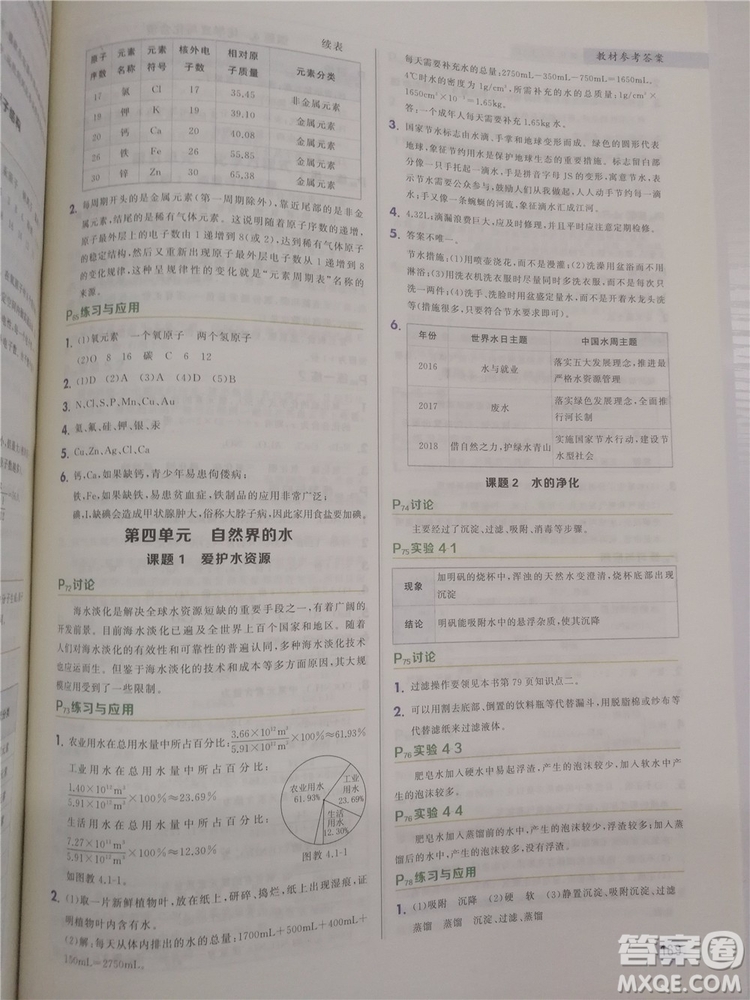 续表
原子序数 元素名称 元素符号 核外电子数 相对原子质量 元素分类
17 氯 Cl 17 35.45 非金属元素
19 钾 K 19 39.10 金属元素
20 钙 Ca 20 40.08 金属元素
26 铁 Fe 26 55.85 金属元素
30 锌 Zn 30 65.38 金属元素
2. 每周期开头的是金属元素(第一周期除外),靠近尾部的是非金
属元素,结尾的是稀有气体元素。随着原子序数的递增,
原子最外层上的电子数由1递增到8(或2),达到稀有气体
的稳定结构,然后又重新出现原子最外层电子数由1递增到8
的变化规律,这种呈规律性的变化就是“元素周期表”名称的
来源。
P65练习与应用
1. (1)氧元素 一个氧原子 两个氢原子
(2)O 8 16 碳 C 6 12
2. (1)D (2)A (3)D (4)A
3. N、Cl、S、P、Mn、Cu、Au
4. 氦、氟、硅、钾、银、汞
5. Cu、Zn、Ag、Cl、Ca
6. 钙,Ca,如果缺钙,青少年易患佝偻病;
铁,Fe,如果缺铁,易患贫血症,铁制品的应用非常广泛;
碘,I,缺碘会造成甲状腺肿大,俗称大脖子病,因此家用食盐要加碘。
第四单元 自然界的水
课题1 爱护水资源
P72讨论
海水淡化是解决全球水资源短缺的重要手段之一,有着广阔的
开发前景。目前海水淡化已遍及世界上百个国家和地区。随着
人们对海水淡化的有效性和可靠性的普遍认识,多种海水淡化技术
也应运而生。但鉴于海水淡化的技术和成本等多方面原因,海水淡
化的应用受到了一些限制。
P73练习与应用
1. 农业用水在总用水量中所占百分比:3.66×10¹²m³/5.91×10¹²m³×100%≈61.93%
工业用水在总用水量中所占百分比:
1.40×10¹²m³/5.91×10¹²m³×100%≈23.69%
生活用水在总用水量中所占百分比:
7.27×10¹¹m³/5.91×10¹²m³×100%≈12.30%
如图教4.1-1。
农业用水
61.93%
工业用水
23.69%
生活用水
12.30%
图教4.1-1
2. (1)取一片新鲜植物叶,放在纸上,研碎、捣烂,纸上出现湿痕,证
明植物叶中含有水。
(2)解:每天从体内排出的水的总量:1700mL+500mL+400mL+
150mL=2750mL。
教材参考答案
每天需要补充水的总量:2750mL-350mL-750mL=1650mL。
4℃时水的密度为1g/cm³,每天需要补充水的质量:1g/cm³×
1650cm³×10⁻³=1.65kg。
答:一个成年人每天需要补充1.65kg水。
3. 国家节水标志由水滴、手掌和地球变形而成。绿色的圆形代表
地球,象征节约用水是保护地球生态的重要措施。标志留白部分
像一只手托起一滴水,手是拼音字母JS的变形,寓意为节水,表
示节水需要公众参与,鼓励人们从我做起,人人动手节约每一滴
水;手又像一条蜿蜒的河流,象征滴水汇成江河。
4. 4.32L;滴漏浪费巨大,应及时修理,一水多用。
5. 答案不唯一。
节水措施:(1)用喷壶浇花,而不是漫灌。(2)洗澡用盆浴而不用
淋浴;(3)用洗衣机洗衣服时尽量多洗几件衣服,而不是每次只
洗一两件;(4)洗手、洗脸时用盆盛定量水,而不是开着水龙头洗
等(措施很多,只要符合节水要求即可)。
6.
年份 世界水日主题 中国水周主题
2016 水与就业 落实五大发展理念,推进最严格水资源管理
2017 废水 落实绿色发展理念,全面推行河长制
2018 借自然之力,护绿水青山 实施国家节水行动,建设节水型社会
课题2 水的净化
P74讨论
主要经过了沉淀、过滤、吸附、消毒等步骤。
P75实验41
现象 加明矾的烧杯中,浑浊的天然水变澄清,烧杯底部出现沉淀
结论 明矾能吸附水中的悬浮杂质,使其沉降
P75讨论
1. 过滤操作要领见本书第79页知识点二。
2. 可以用割去底部、倒置的饮料瓶等代替漏斗,用脱脂棉或纱布等
代替滤纸来过滤液体。
P76实验43
肥皂水加入硬水中易起浮渣,产生的泡沫较少。加入软水中产
生的泡沫较多。
P76实验44
肥皂水加入蒸馏前的水中,产生的泡沫较少,浮渣较多;加入蒸
馏后的水中,产生的泡沫较多,没有浮渣。
P78练习与应用
1. (1)吸附 沉降 (2)硬 软 (3)静置沉淀、吸附沉淀、过滤、
蒸馏 蒸馏 沉淀、过滤、蒸馏
答案圈
MXQE.COM